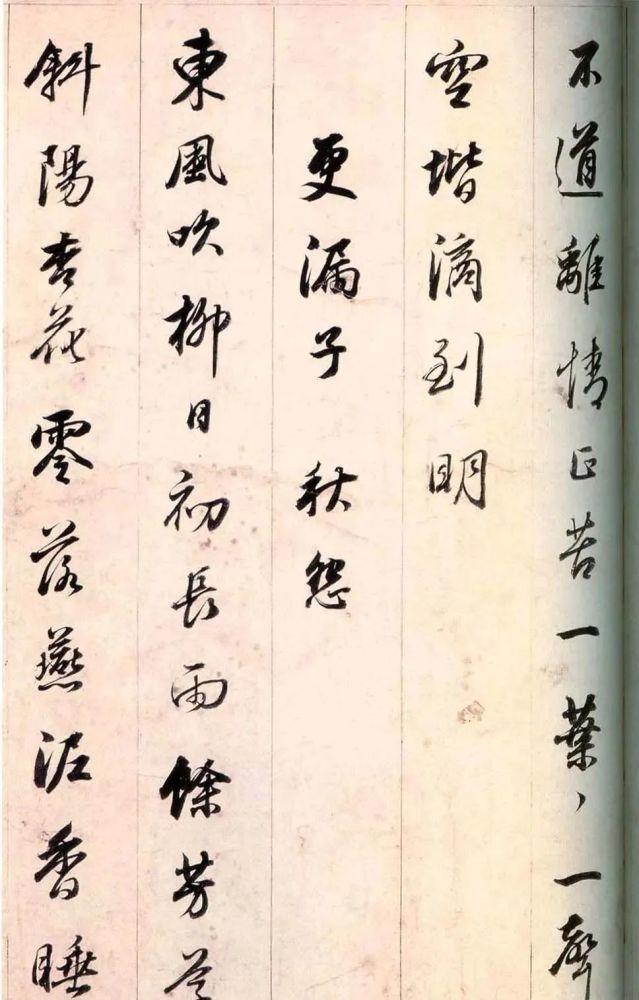 不道離情正苦一葉、一聲
空堦滴到明
更漏子 秋怨
東風吹柳日初長雨餘芳草
斜陽杏花零落燕泥香睡